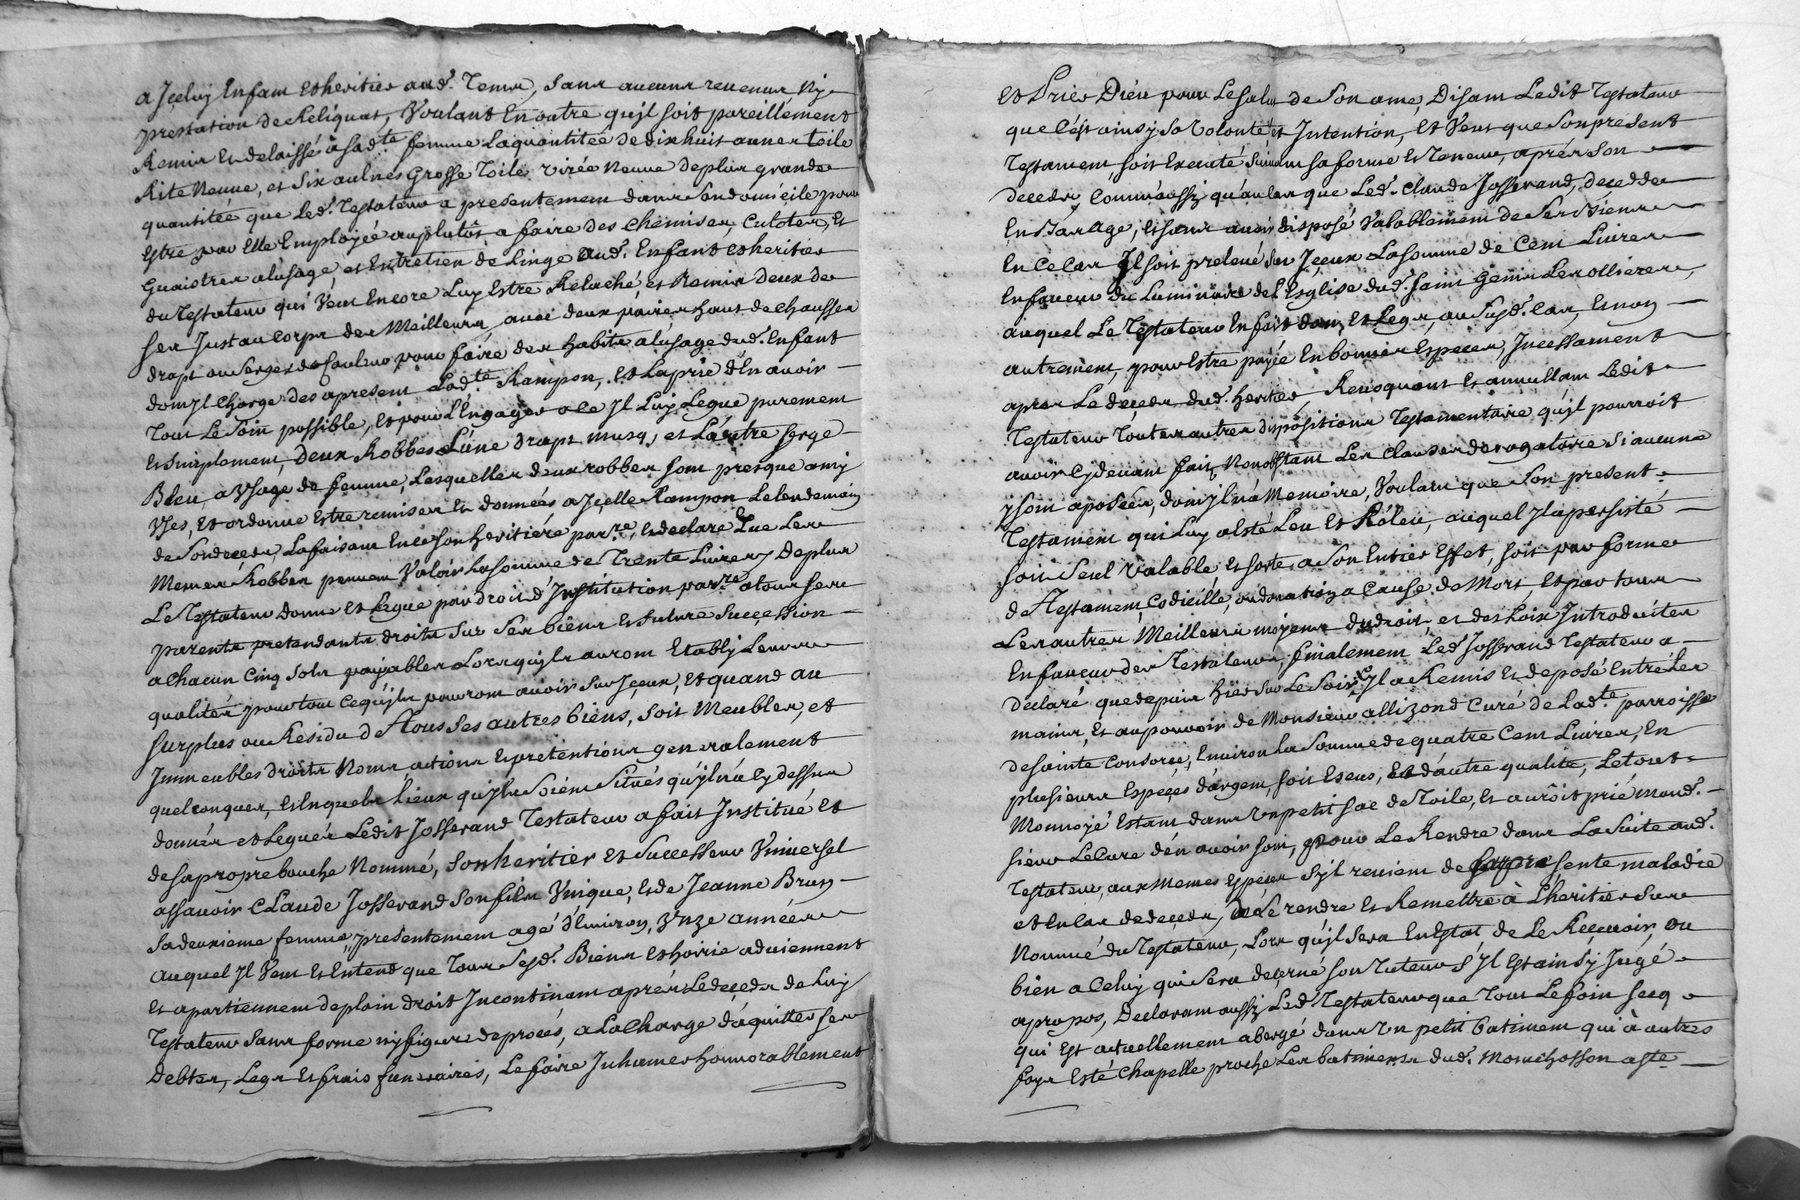 a Jceluy Enfant et heritier aud.t Tems, sans aucuns revenus Ny
prestation de Reliquat, Voulant En outre qu'jl soit pareillement
Remis et delaissé à sad.te femme La quantité de dix huit aunes toile
Rite Neuve, et six aulnes Grosse Toile virée Neuve de plus grande
quantitée que led.t Testateur a presentement dans son domicile pour
Estre par Elle Employée au plutôt a faire des Chemises, Culotes, Et
Guaistres a l'usage, et Entretien de Linge aud.t Enfant et heritier
du Testateur qui Veut Encore Luy Estre Relaché, et Remis deux de
ses Justaucorps des Meilleurs, avec deux paires haut de chausses
drapt ou Serges de Couleur pour faire des habits a l'usage dud.t Enfant
dont jl Charge des apresent Lad.te Rampon, et La prie d'En avoir
Tout Le Soin possible, et pour L'Engager a ce Jl Luy Legue purement
et simplement, deux Robbes L'une drapt musq, et L'autre serge
Bleu, a Vsage de femme, Lesquelles deux robbes sont presque amy
Vses, Et ordonne Estre remises et données a Jcelle Rampon Le lendemain
de son deçeds La faisant En ce son heritiere par.re, Et declare Que Les
Memes Robbes peuvent Valoir La somme de Trente Livres, De plus
Le Testateur donne et Legue par droit d'Jnstitution par.re a tous ses
parents pretendants droits sur ses biens et future Succession
a Chacun Cinq sols payables Lors qu'jls auront Etably Leurs
qualités pour tout ce qu'jls pourront avoir sur Jceux, Et quand au
surplus ou Residu de Tous ses autres biens, soit Meubles, et
Jmmeubles droits Noms actions et pretentions generalement
quelconques, Et En quels Lieux qu'jls Soient Situés qu'jl n'a Cy dessus
donnés et Legués Ledit Josserand Testateur a fait Jnstitué et
de sa propre bouche Nommé, son heritier Et Successeur Vniversel
assavoir CLaude Josserand son fils Vnique, et de Jeanne Brun
sa deuxieme femme, presentement agé d'Environ, Vnze années
auquel Jl Veut et Entend que Tous Sesd.ts Biens et hoirie adviennent
et apartiennent de plain droit Jncontinant après Le deçeds de Luy
Testateur sans forme ny figure de procés, a La Charge d'aquitter ses
Debtes, Legs Et frais funeraires, Le faire Jnhumer honnorablement
Et Prier Dieu pour Le salut de son ame, Disant Ledit Testateur
que C'est ainsy sa Volonté et Jntention, Et Veut que son present
Testament soit Executé suivant sa forme Et Teneur, après son
deceds, Comme aussy qu'au Cas que Led.t Claude Josserand, decedde
En Bas age, et sans avoir disposé Valablement de ses Biens
En ce Cas Jl soit prelevé sur Jceux La somme de Cent Livres
En faveur du Luminaire de L'Esglise dud.t Saint Genis Les ollieres,
auquel Le Testateur En fait don, Et Legs, au susd.t Cas, Et non
autrement, pour Estre payée En bonnes Especes, Jncessament
apres Le deçeds dud.t heritier, Revoquant Et annullant Ledit
Testateur Toutes autres dispositions Testamentaire qu'jl pourroit
avoir Cy devant fait, Nonobstant Les Clauses derogatoire si aucuns
y sont aposées, dont jl n'a Memoire, Voulant que Son present
Testament qui Luy a Esté Leu Et Réleu, auquel Jl a persisté
soit Seul Valable et sorte a Son Entier Effet, soit par forme
de Testament, Codicille, ou donation a Cause de Mort, Et par tous
Les autres Meilleurs moyens du droit, et des Loix Jntroduites
En faveur des Testateurs, finalement Led.t Josserand Testateur a
Declaré que depuis hier sur Le soir, Jl a Remis Et deposé Entre Les
mains, Et au pouvoir de Monsieur allizond Curé de Lad.te parroisse
de sainte Consorce, Environ La Somme de quatre Cent Livres, En
plusieurs Especes d'argent, soit Escus, Et d'autre qualité, Le tout
Monnoyé Estant dans Un petit sac de Toile, Et auroit prié Mond.t
sieur Le Cure d'En avoir soin, pour Le Rendre dans La Suite aud.t
Testateur, aux Memes Especes S'jl revient de sa presente maladie
et En Cas de deçeds, de Le rendre Et Remettre à L'heritier Sus
Nommé du Testateur, Lors qu'jl Sera En Estat de Le Reçevoir, ou
bien a Celuy qui Sera deçerné son Tuteur S'Jl Est ainsy Jugé
apropos, Declarant aussy Led.t Testateur que Tout Le foin secq
qui Est actuellement abergé dans Un petit batiment qui à autres
foys Esté Chapelle proche Les batiments dud.t Monchosson a ste